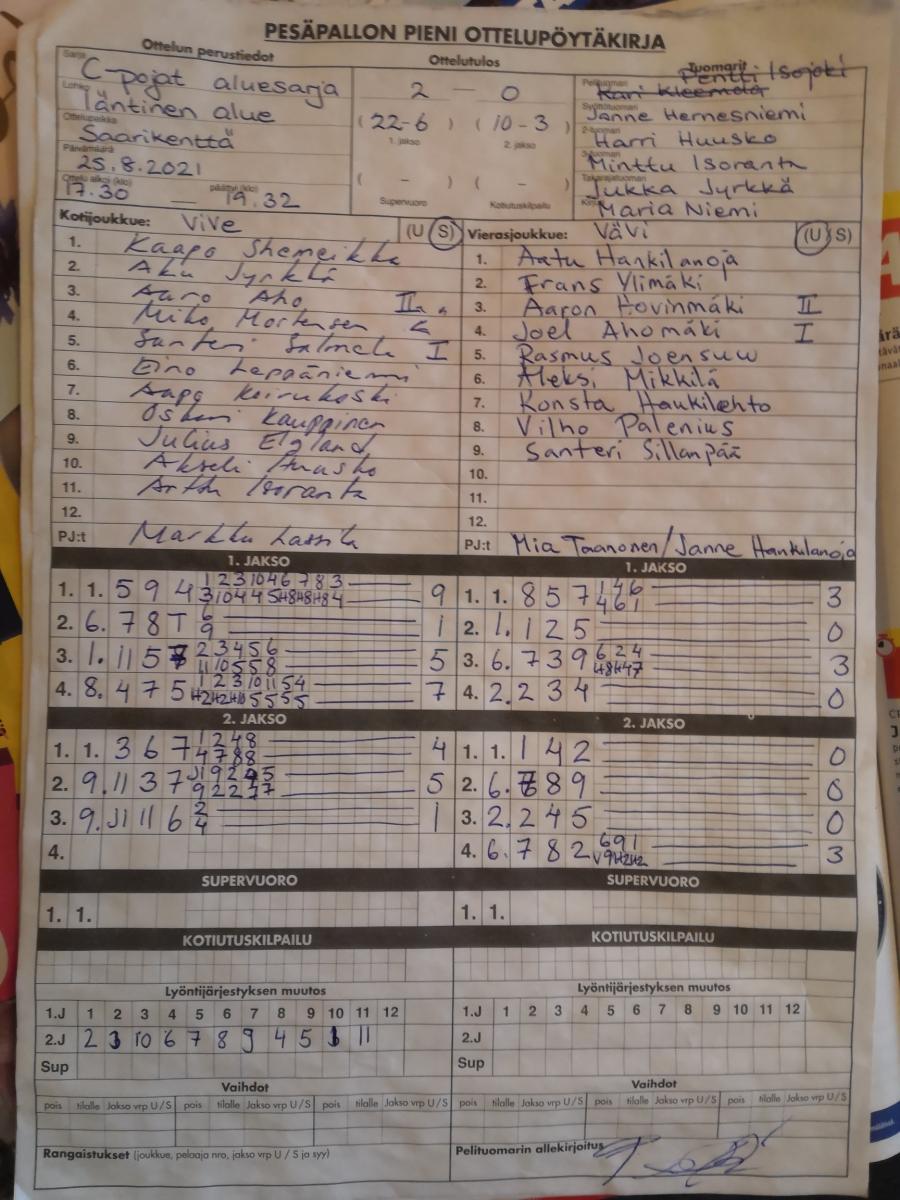 PESÄPALLON PIENI OTTELUPÖYTÄKIRJA
Ottelun perustiedot
Ottelutulos
Tuomarit
Sarja
C-pojat aluesarja
Lohko
läntinen alue
Ottelupaikka
Saarikenttä
Päivämäärä
25.8.2021
Ottelu alkoi (klo) päättyi (klo)
17.30 — 19.32
2 — 0
(22-6) (10-3)
1. jakso 2. jakso
( - ) ( - )
Supervuoro Kotiutuskilpailu
Pentti Isojoki
Pelituomari
Kari Kleemola
Syöttötuomari
Janne Hernesniemi
2-tuomari
Harri Huusko
3-tuomari
Minttu Isoranta
Takarajatuomari
Jukka Jyrkkä
Kirjuri
Maria Niemi
Kotijoukkue: ViVe (U S)
1. Kaapo Shemeikka
2. Aku Jyrkkä
3. Aaro Aho II
4. Miko Mortensen
5. Santeri Salmela I
6. Eino Leppäniemi
7. Aapo Koivukoski
8. Oskari Kauppinen
9. Julius Elgland
10. Akseli Huusko
11. Arttu Isoranta
12.
PJ:t Markku Lassila
Vierasjoukkue: VäVi (U S)
1. Aatu Hankilanoja
2. Frans Ylimäki
3. Aaron Hovinmäki II
4. Joel Ahomäki I
5. Rasmus Joensuu
6. Aleksi Mikkilä
7. Konsta Haukilehto
8. Vilho Palenius
9. Santeri Sillanpää
10.
11.
12.
PJ:t Mia Taanonen/Janne Hankilanoja
1. JAKSO
1. 1. 5 9 4 1 2 3 10 4 6 7 8 3 9
3 10 4 4 5 H8 H8 H8 4
2. 6. 7 8 T 6 1
9
3. 1. 11 5 7 2 3 4 5 6 5
11 10 5 5 8
4. 8. 4 7 5 1 2 3 10 11 5 4 7
H2 H2 H10 5 5 5 5
1. JAKSO
1. 1. 8 5 7 1 4 6 3
4 6 1
2. 1. 1 2 5 0
3. 6. 7 3 9 6 2 4 3
H8 H4 7
4. 2. 2 3 4 0
2. JAKSO
1. 1. 3 6 7 1 2 4 8 4
4 7 8 8
2. 9. 11 3 7 J1 9 2 4 5 5
9 2 2 7 7
3. 9. J1 11 6 2 1
4
4.
2. JAKSO
1. 1. 1 4 2 0
2. 6. 7 8 9 0
3. 2. 2 4 5 0
4. 6. 7 8 2 6 9 1 3
V9 H2 H2
SUPERVUORO
1. 1.
SUPERVUORO
1. 1.
KOTIUTUSKILPAILU
KOTIUTUSKILPAILU
Lyöntijärjestyksen muutos
1.J 1 2 3 4 5 6 7 8 9 10 11 12
2.J 2 3 10 6 7 8 9 4 5 1 11
Sup
Lyöntijärjestyksen muutos
1.J 1 2 3 4 5 6 7 8 9 10 11 12
2.J
Sup
Vaihdot
pois tilalle Jakso vrp U / S pois tilalle Jakso vrp U / S pois tilalle Jakso vrp U / S
Vaihdot
pois tilalle Jakso vrp U / S pois tilalle Jakso vrp U / S pois tilalle Jakso vrp U / S
Rangaistukset (joukkue, pelaaja nro, jakso vrp U / S ja syy)
Pelituomarin allekirjoitus